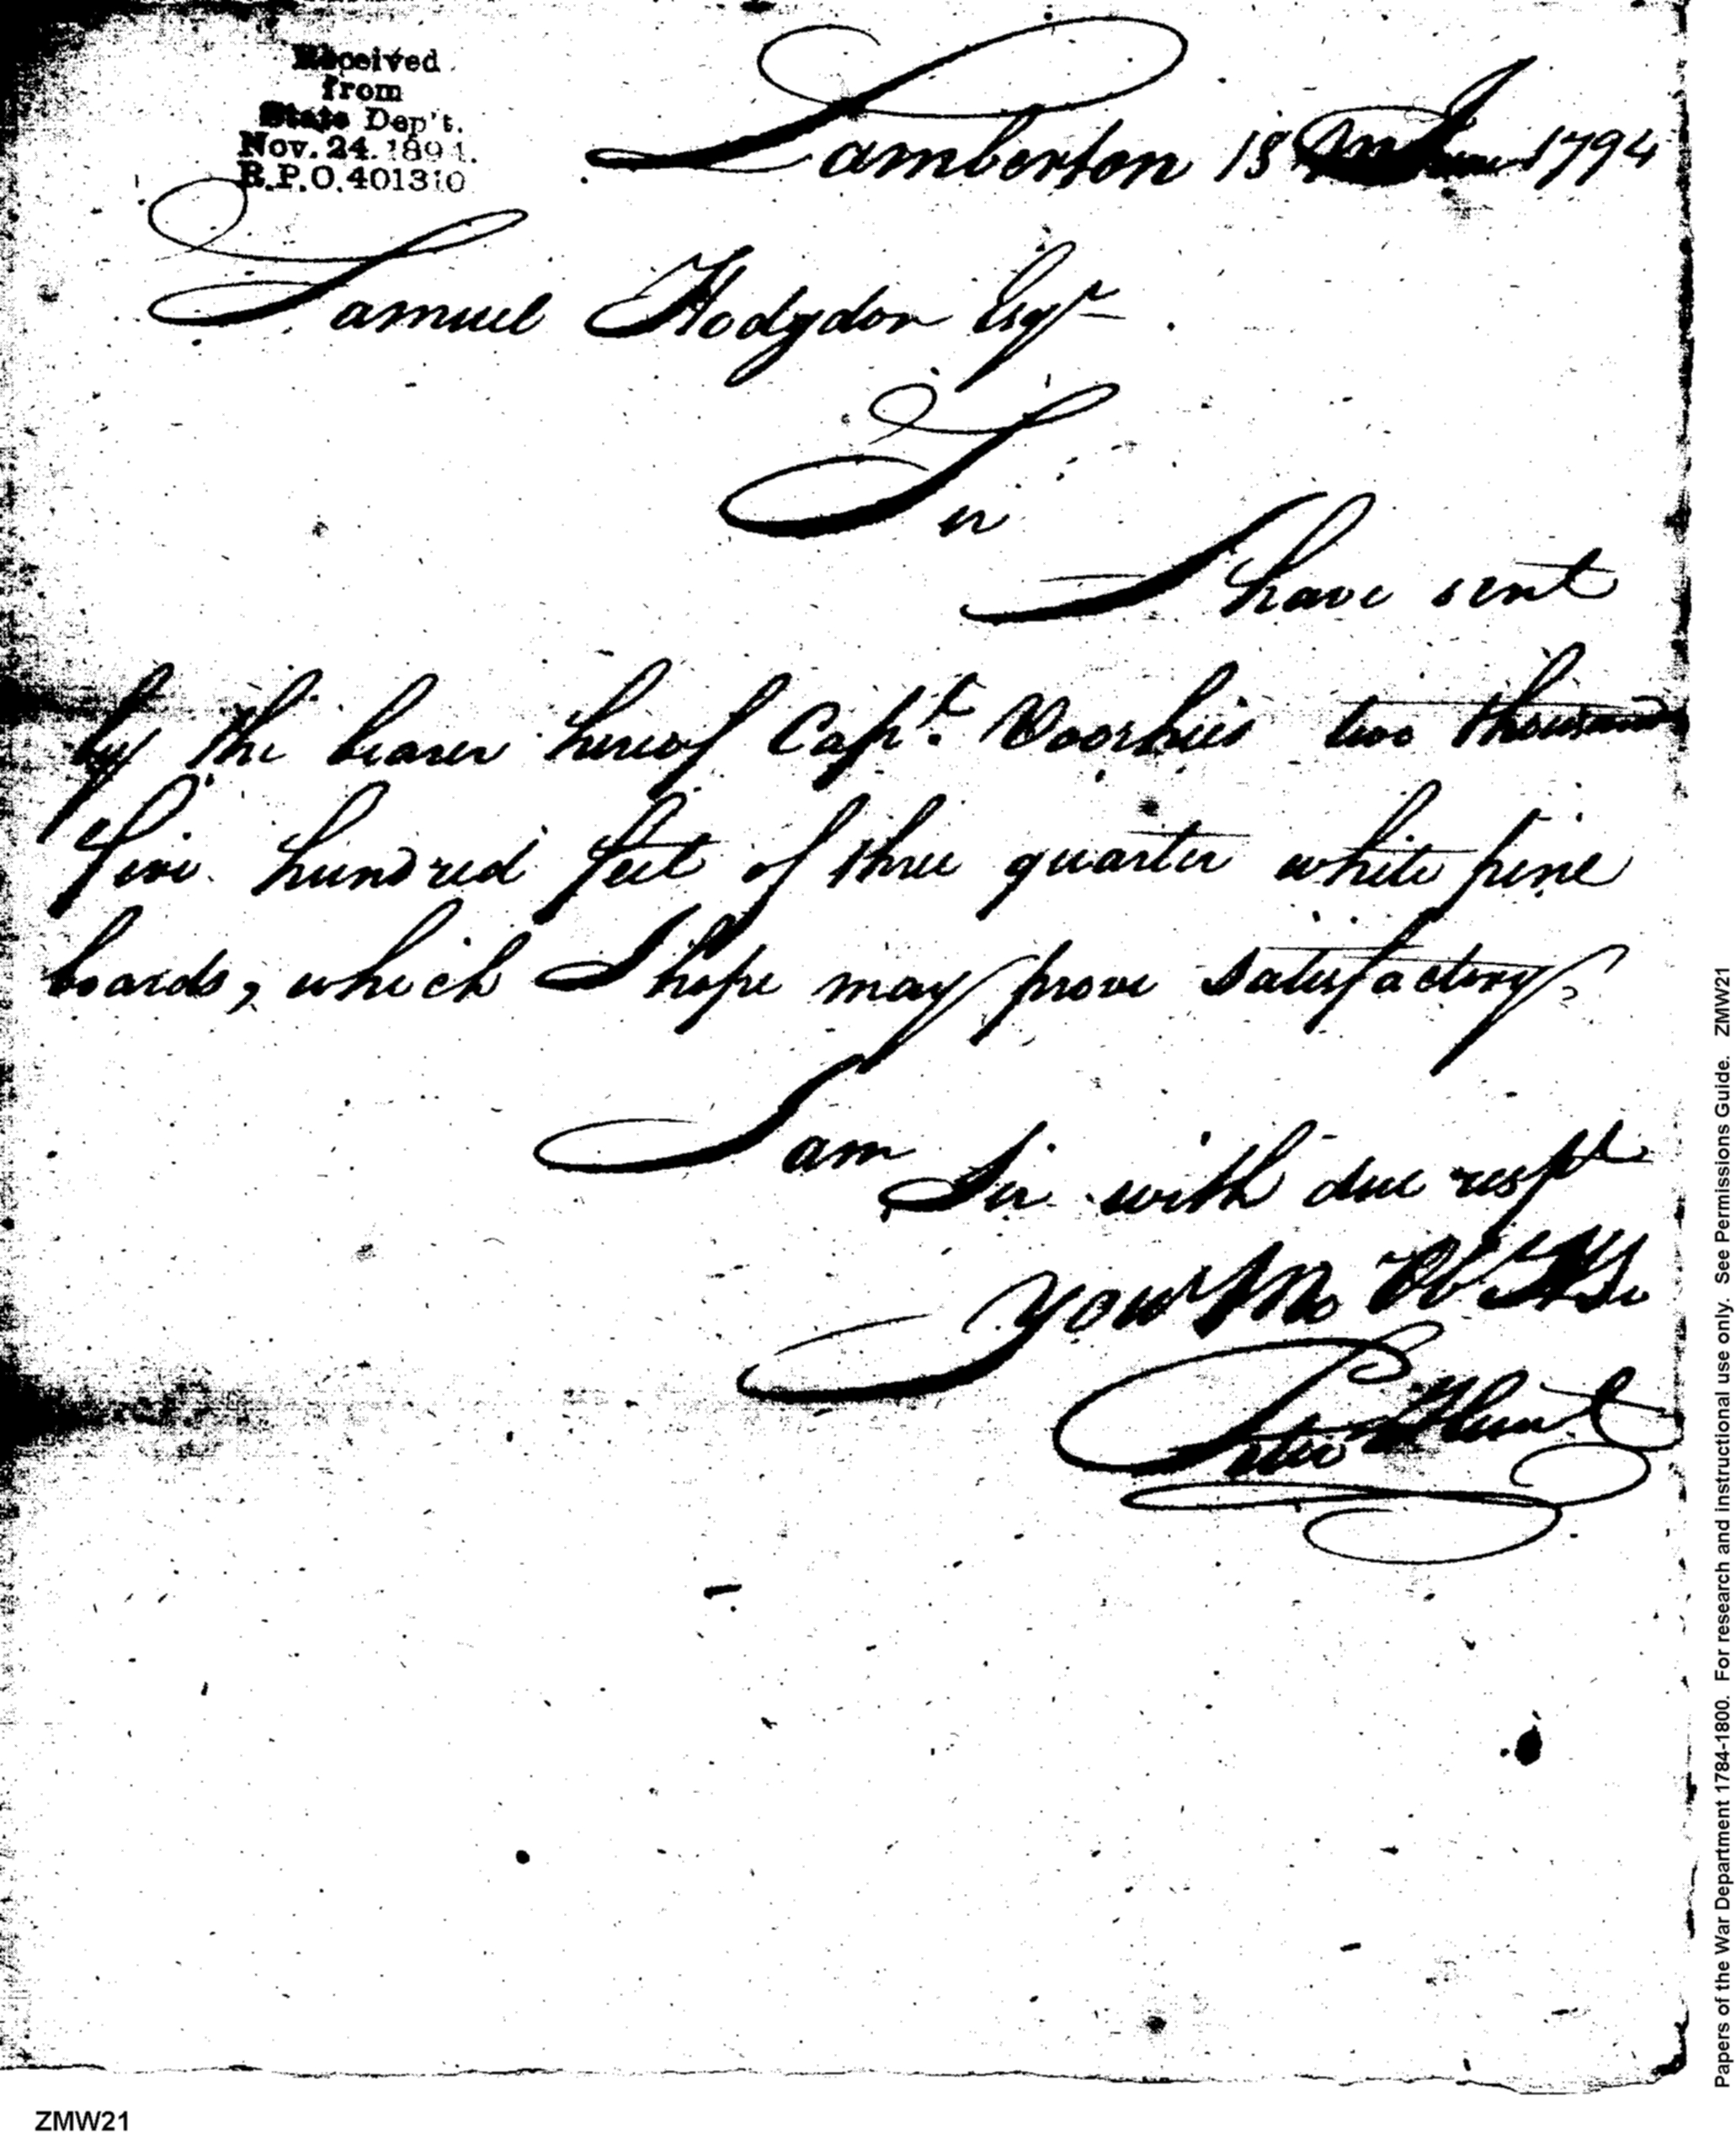 Received
from
State Dep't.
Nov. 24. 1894.
R.P.O. 401310
Lamberton 18 June 1794
Samuel Hodgdon Esqr
Sir
I have sent
by the bearer hereof Capt. Voorhies two thousand
five hundred feet of three quarter white pine
boards, which I hope may prove satisfactory
I am
Sir with due respt
Your Mo Ob
Peter Hunt
Papers of the War Department 1784-1800. For research and instructional use only. See Permissions Guide. ZMW21
ZMW21